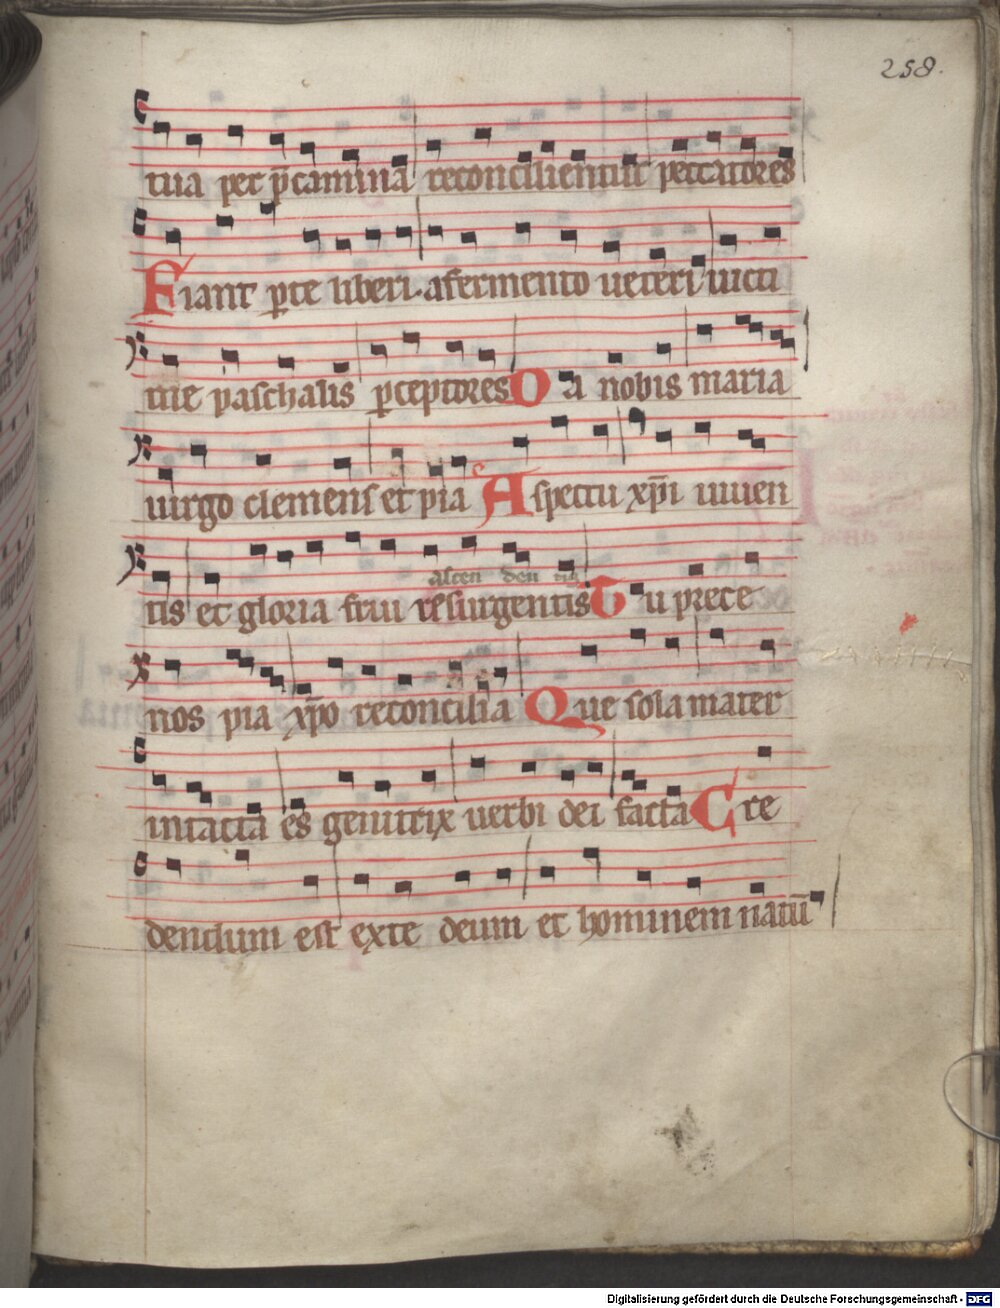 258.
tua per p̄camina reconcilientur peccatores
Fiant per te liberi. afermento ueteri uicti
me paschalis p̄ceptores O a nobis maria
uirgo clemens et pia Aspectu xp̄i uiuen
ascen den tis
tis et gloria frui resurgentis Tu prece
nos pia xp̄o reconcilia Que sola mater
intacta es genitrix uerbi dei facta Cre
dendum est exte deum et hominem natū
Digitalisierung gefördert durch die Deutsche Forschungsgemeinschaft - DFG